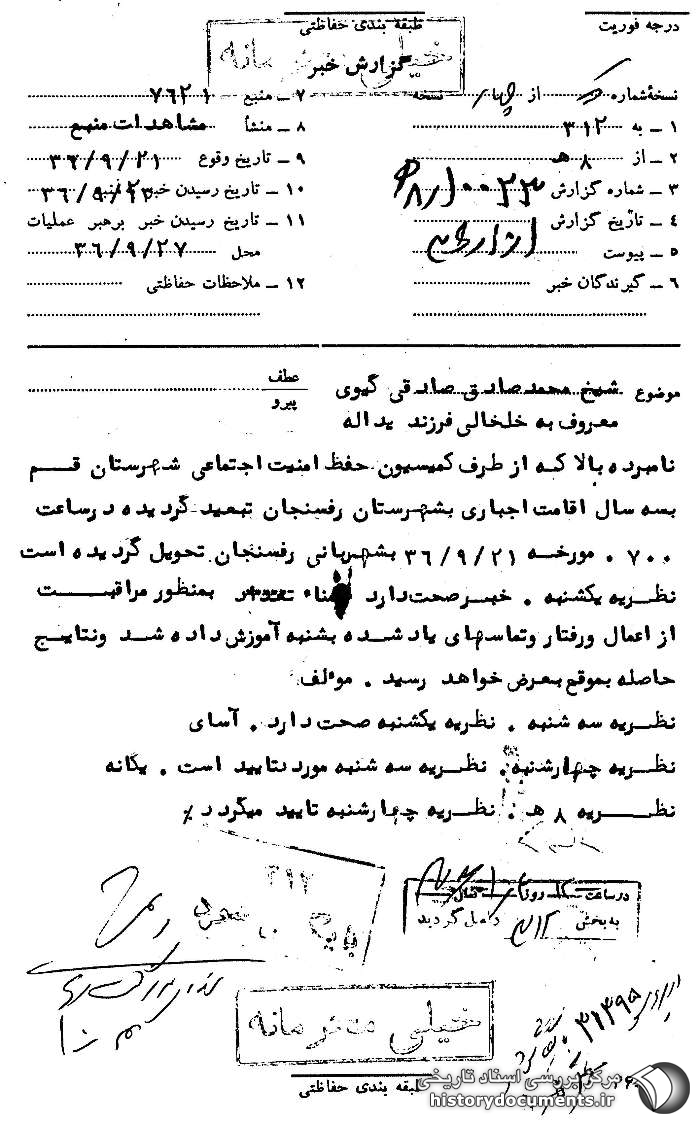 درجه فوریت
طبقه بندی حفاظتی
خیلی محرمانه
گزارش خبر
نسخهٔ شماره از چهار نسخه
۱ ـ به ۳۱۲
۲ ـ از ۸ هـ
۳ ـ شماره گزارش
۴ ـ تاریخ گزارش
۵ ـ پیوست
۶ ـ گیرندگان خبر
۷ ـ منبع ۷۶۲۱
۸ ـ منشأ مشاهدات منبع
۹ ـ تاریخ وقوع ۳۶/۹/۲۱
۱۰ ـ تاریخ رسیدن خبر به منبع ۳۶/۹/۲۳
۱۱ ـ تاریخ رسیدن خبر برهبر عملیات
محل ۳۶/۹/۲۷
۱۲ ـ ملاحظات حفاظتی
موضوع شیخ محمدصادق صادقی گیوی
معروف به خلخالی فرزند یداله
عطف
پیرو
نامبرده بالا که از طرف کمیسیون حفظ امنیت اجتماعی شهرستان قم
بسه سال اقامت اجباری بشهرستان رفسنجان تبعید گردیده درساعت
۷۰۰ . مورخه ۳۶/۹/۲۱ بشهربانی رفسنجان تحویل گردیده است
نظریه یکشنبه . خبر صحت دارد بمنظور مراقبت
از اعمال ورفتار وتماسهای یاد شده بشنبه آموزش داده شد ونتایج
حاصله بموقع بعرض خواهد رسید . موئلف
نظریه سه شنبه . نظریه یکشنبه صحت دارد . آسای
نظریه چهارشنبه . نظریه سه شنبه مورد تایید است . یگانه
نظریه ۸ هـ . نظریه چهارشنبه تایید میگردد٪
۳۱۲
در ساعت روز
به بخش ۳۱۲ واصل گردید
خیلی محرمانه
طبقه بندی حفاظتی
مرکز بررسی اسناد تاریخی
historydocuments.ir